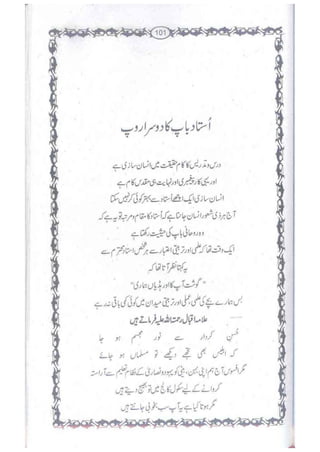 101
اُستاد باپ کا دوسرا روپ
درس و تدریس کا کام حقیقت میں انسان سازی ہے
اور یہی کارِ پیغمبری اور نہایت ہی مقدس کام ہے
انسان سازی ایک اچھے اُستاد سے بہتر کوئی کر نہیں سکتا
آج ہر ذی شعور انسان جانتا ہے کہ اُستاد کا مقام و مرتبہ تو یہ ہے کہ
وہ روحانی باپ کی حیثیت رکھتا ہے
ایک وقت تھا کہ علمی اور تربیتی اعتبار سے ہر شخص استاد محترم سے
یہ کہتا نظر آتا تھا کہ
"گوشت آپ کا اور ہڈیاں ہماری"
بس ہمارے بچے کی علمی، عملی اور تربیتی میدان میں کوئی کمی باقی نہ رہے
علامہ اقبال رحمۃ اللہ علیہ فرماتے ہیں
حُسنِ کردار سے نورِ مجسم ہو جا
کہ ابلیس بھی تجھے دیکھے تو مسلماں ہو جائے
مگر افسوس آج ہم اپنی بہن، بیٹی کو یہود و نصاریٰ کے نظام تعلیم سے آراستہ
کروانے کے لیے سکول کالج میں تو بھیج دیتے ہیں
مگر ہوتا کیا ہے یہ آپ سب بخوبی جانتے ہیں